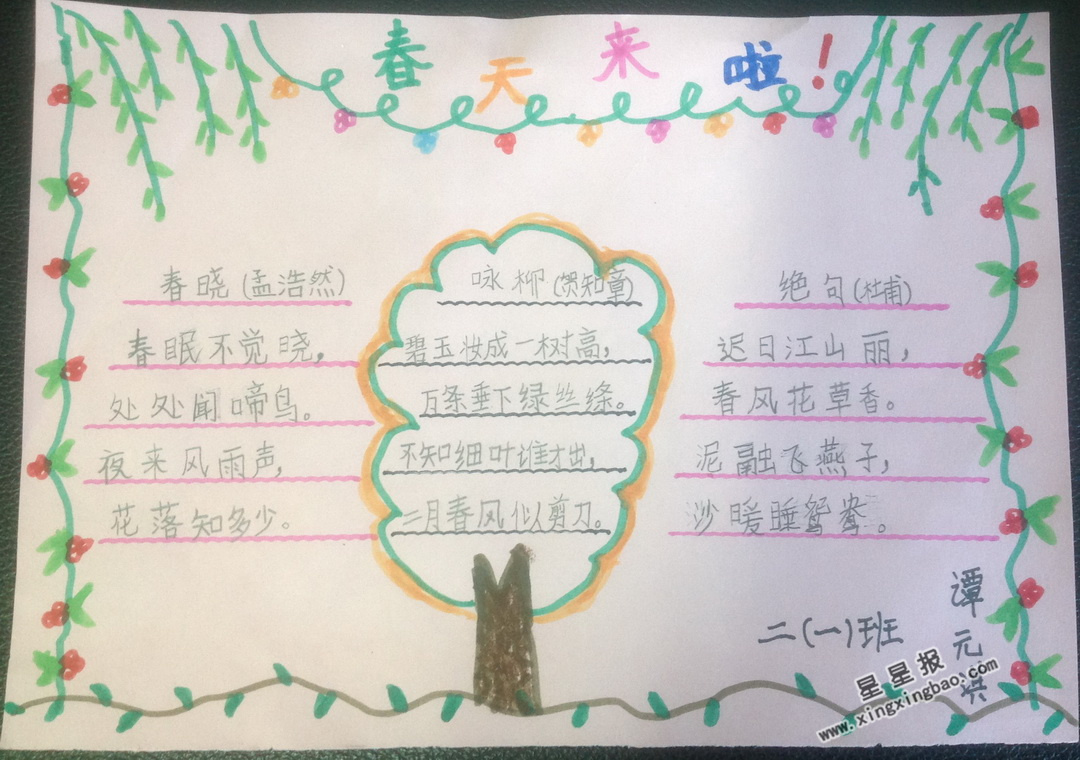 春天来啦！
春晓(孟浩然)
春眠不觉晓，
处处闻啼鸟。
夜来风雨声，
花落知多少。
咏柳(贺知章)
碧玉妆成一树高，
万条垂下绿丝绦。
不知细叶谁才出，
二月春风似剪刀。
绝句(杜甫)
迟日江山丽，
春风花草香。
泥融飞燕子，
沙暖睡鸳鸯。
二(一)班
谭元
星星报
www.xingxingbao.com